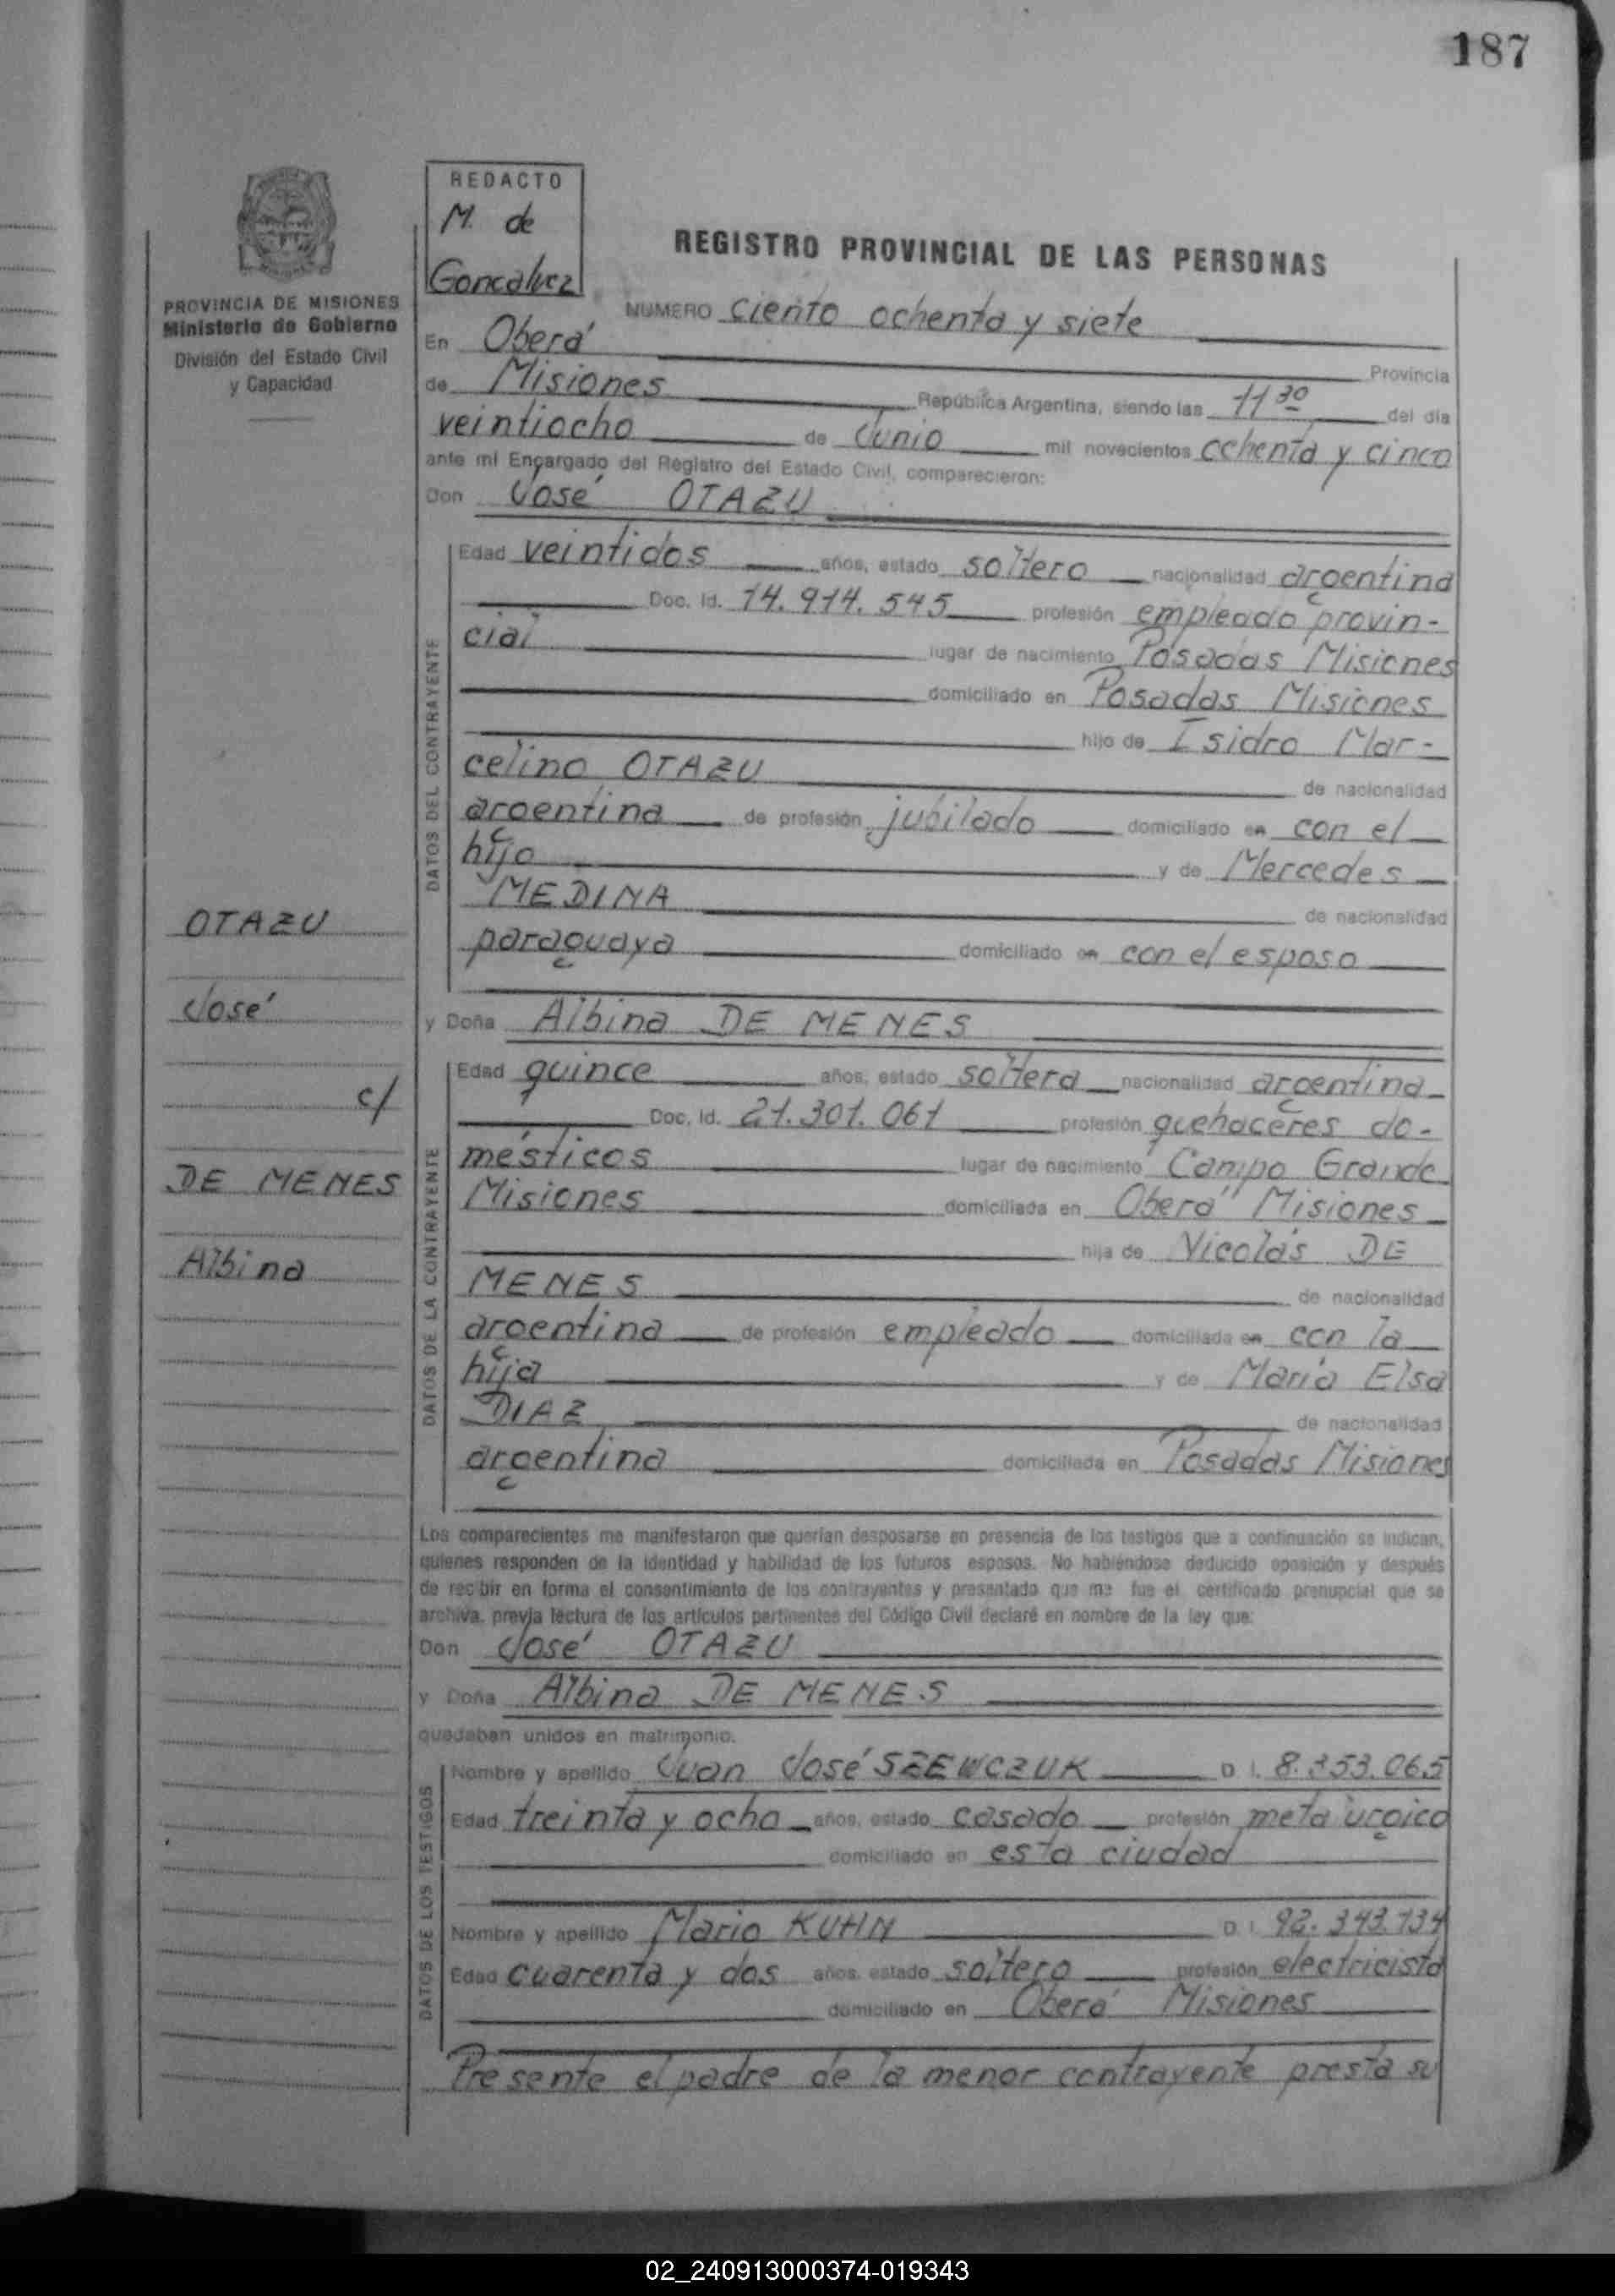 187
REDACTO
M. de
Goncalvez
REGISTRO PROVINCIAL DE LAS PERSONAS
PROVINCIA DE MISIONES
Ministerio de Gobierno
División del Estado Civil
y Capacidad
NUMERO ciento ochenta y siete
En Oberá Provincia
de Misiones República Argentina, siendo las 11 30 del día
veintiocho de Junio mil novecientos ochenta y cinco
ante mi Encargado del Registro del Estado Civil, comparecieron:
Don José OTAZU
DATOS DEL CONTRAYENTE
Edad veintidos años, estado soltero nacionalidad argentina
Doc. Id. 14.914.545 profesión empleado provin-
cial lugar de nacimiento Posadas Misiones
domiciliado en Posadas Misiones
hijo de Isidro Mar-
celino OTAZU de nacionalidad
argentina de profesión jubilado domiciliado en con el
hijo y de Mercedes
MEDINA de nacionalidad
paraguaya domiciliado en con el esposo
y Doña Albina DE MENES
DATOS DE LA CONTRAYENTE
Edad quince años, estado soltera nacionalidad argentina
Doc. Id. 21.301.061 profesión quehaceres do-
mésticos lugar de nacimiento Campo Grande
Misiones domiciliada en Oberá Misiones
hija de Nicolás DE
MENES de nacionalidad
argentina de profesión empleado domiciliada en con la
hija y de María Elsa
DIAZ de nacionalidad
argentina domiciliada en Posadas Misiones
OTAZU
José
c/
DE MENES
Albina
Los comparecientes me manifestaron que querían desposarse en presencia de los testigos que a continuación se indican,
quienes responden de la identidad y habilidad de los futuros esposos. No habiéndose deducido oposición y después
de recibir en forma el consentimiento de los contrayentes y presentado que me fue el certificado prenupcial que se
archiva, previa lectura de los artículos pertinentes del Código Civil declaré en nombre de la ley que:
Don José OTAZU
y Doña Albina DE MENES
quedaban unidos en matrimonio.
DATOS DE LOS TESTIGOS
Nombre y apellido Juan José SZEWCZUK D. I. 8.353.065
Edad treinta y ocho años, estado casado profesión metalúrgico
domiciliado en esta ciudad
Nombre y apellido Mario KUHN D. I. 92.343.134
Edad cuarenta y dos años, estado soltero profesión electricista
domiciliado en Oberá Misiones
Presente el padre de la menor contrayente presta su
02_240913000374-019343